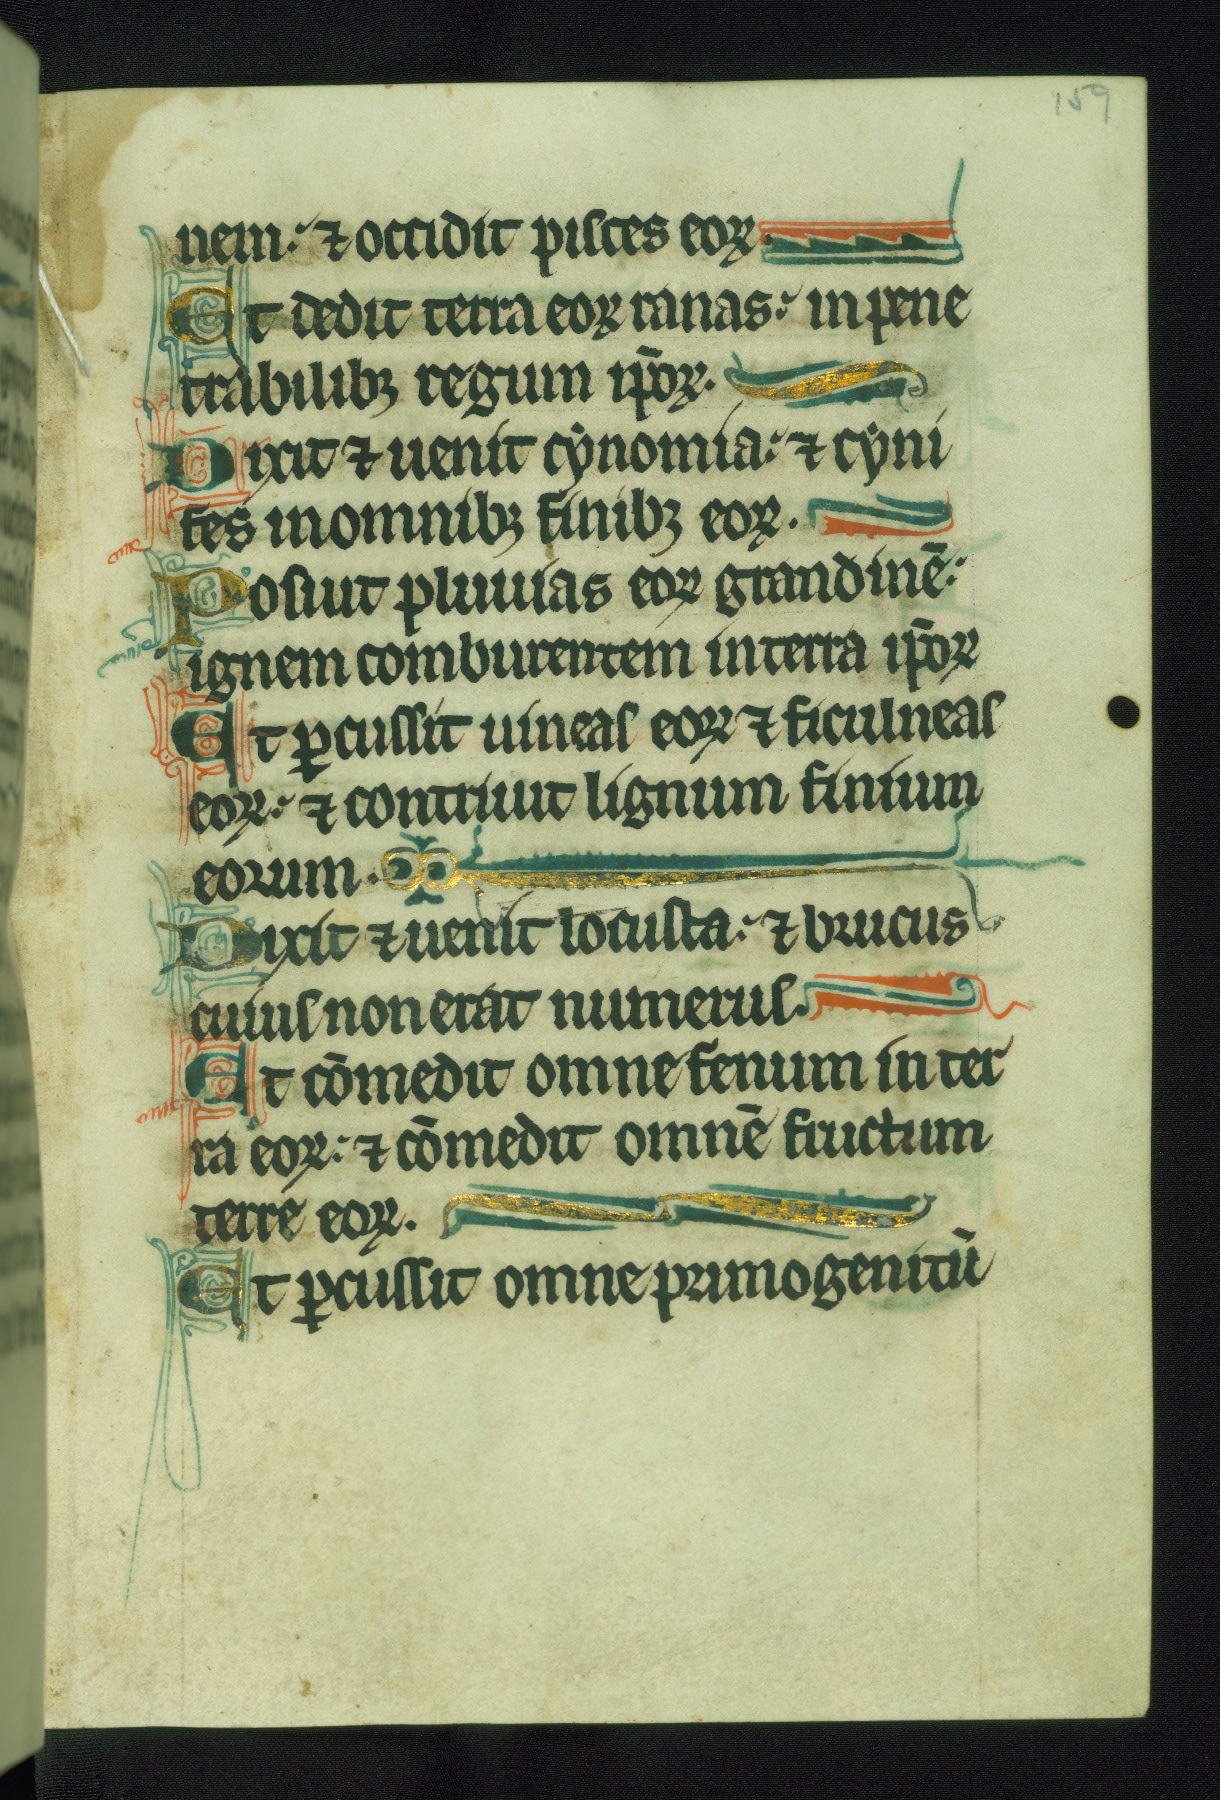 159
nem: ⁊ occidit pisces eoꝝ.
Et dedit terra eoꝝ ranas: in pene
trabilibꝫ regum ip̄oꝝ.
Dixit ⁊ uenit cẏnomia: ⁊ cẏni
fes in omnibꝫ finibꝫ eoꝝ.
Posuit pluuias eoꝝ grandinē:
ignem comburentem in terra ip̄oꝝ
Et ꝑcussit uineas eoꝝ ⁊ ficulneas
eoꝝ: ⁊ contriuit lignum finium
eorum.
Dixit ⁊ uenit locusta: ⁊ brucus
cuius non erat numerus.
Et cōmedit omne fenum in ter
ra eoꝝ: ⁊ cōmedit omnē fructum
terre eoꝝ.
Et ꝑcussit omne primogenitū